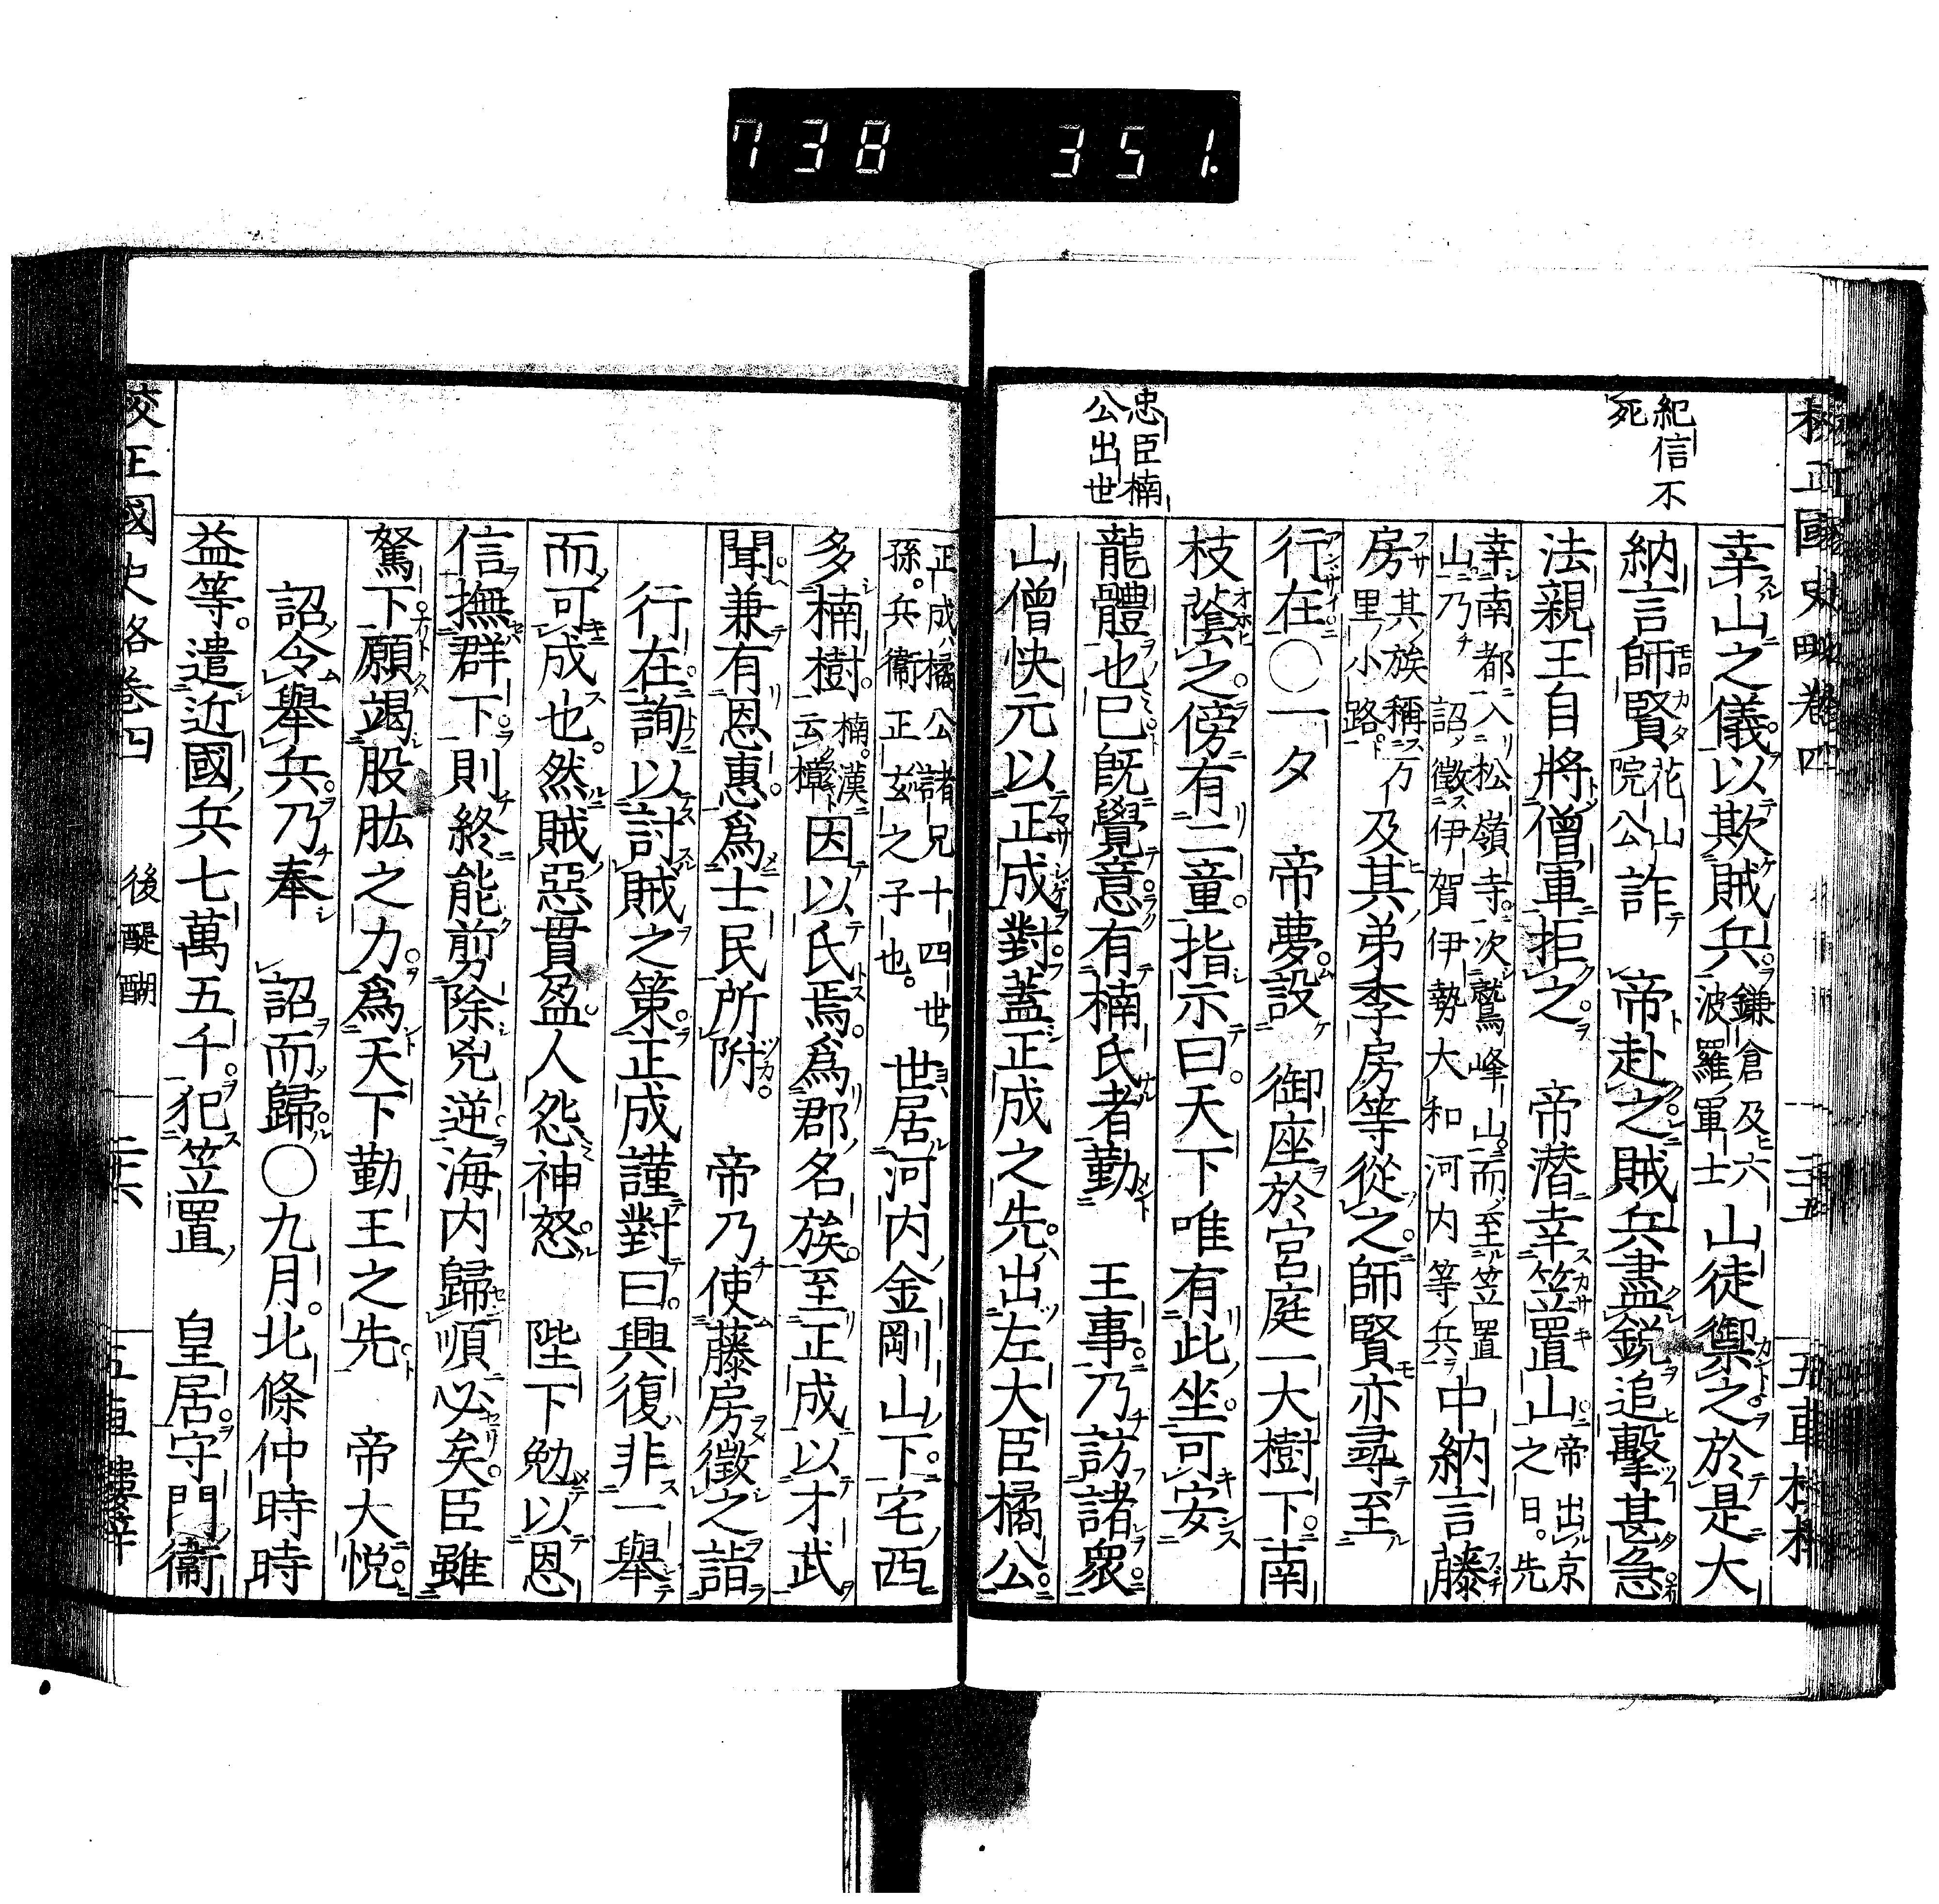 738 351
校正國史略卷四
紀信不
死
忠臣楠
公出世
幸山之儀以欺賊兵鎌倉及六波羅軍士山徒禦之於是大
納言師賢花山院公詐 帝赴之賊兵盡鋭追擊甚急
法親王自將僧軍拒之 帝潜幸笠置山帝出京之日先
幸南都入松嶺寺次鷲峰山而至笠置山乃 詔徵伊賀伊勢大和河内等兵中納言藤
房其族稱万里小路及其弟季房等從之師賢亦尋至
行在〇一夕 帝夢設 御座於宮庭一大樹下南
枝蔭之傍有二童指示曰天下唯有此坐可安
龍體也已既覺意有楠氏者勤 王事乃訪諸衆
山僧快元以正成對蓋正成之先出左大臣橘公
正成橘公諸兄十四世孫兵衞正玄之子也世居河内金剛山下宅西
多楠樹楠漢云樟因以氏焉爲郡名族至正成以才武
聞兼有恩惠爲士民所附 帝乃使藤房徵之詣
行在詢以討賊之策正成謹對曰興復非一舉
而可成也然賊惡貫盈人怨神怒 陛下勉以恩
信撫群下則終能剪除兇逆海内歸順必矣臣雖
駑下願竭股肱之力爲天下勤王之先 帝大悦
詔令舉兵乃奉 詔而歸〇九月北條仲時時
益等遣近國兵七萬五千犯笠置 皇居守門衞
校正國史略卷四 後醍醐 二十六